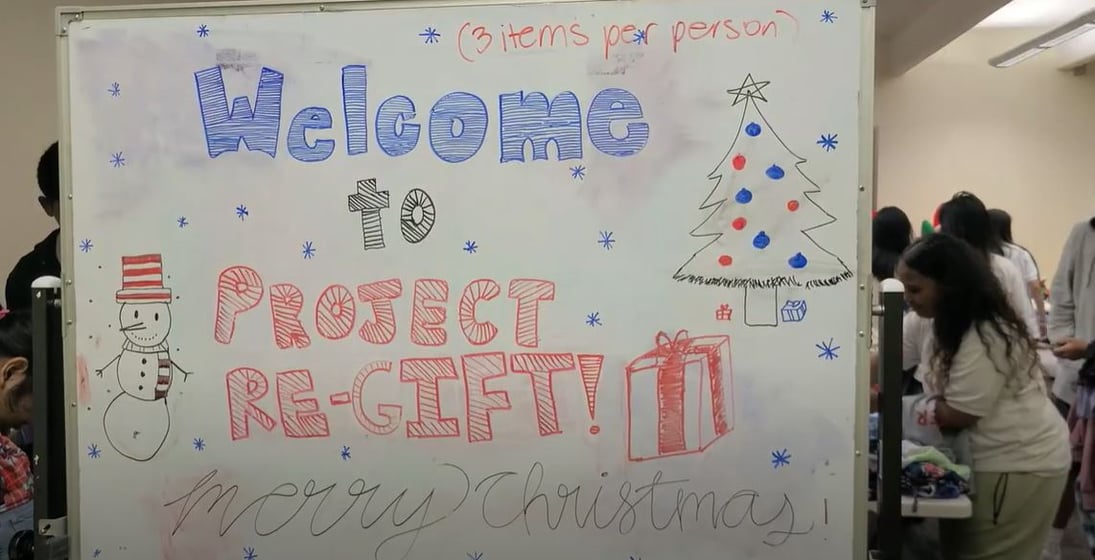 (3 items per person)
Welcome
to
PROJECT
RE-GIFT!
merry christmas!